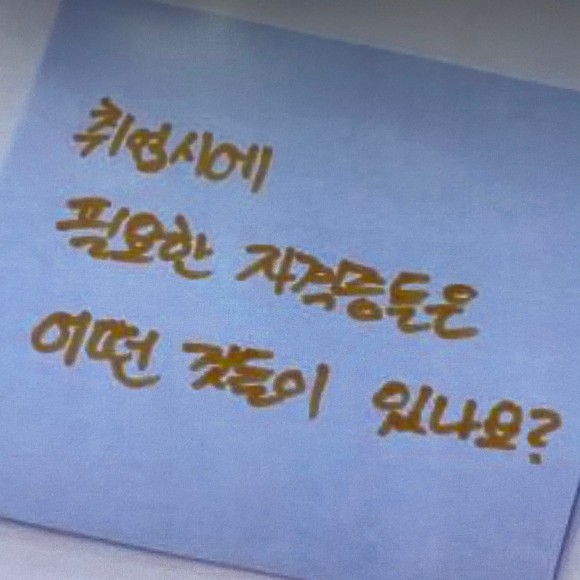 취업시에
필요한 자격증들은
어떤 것들이 있나요?